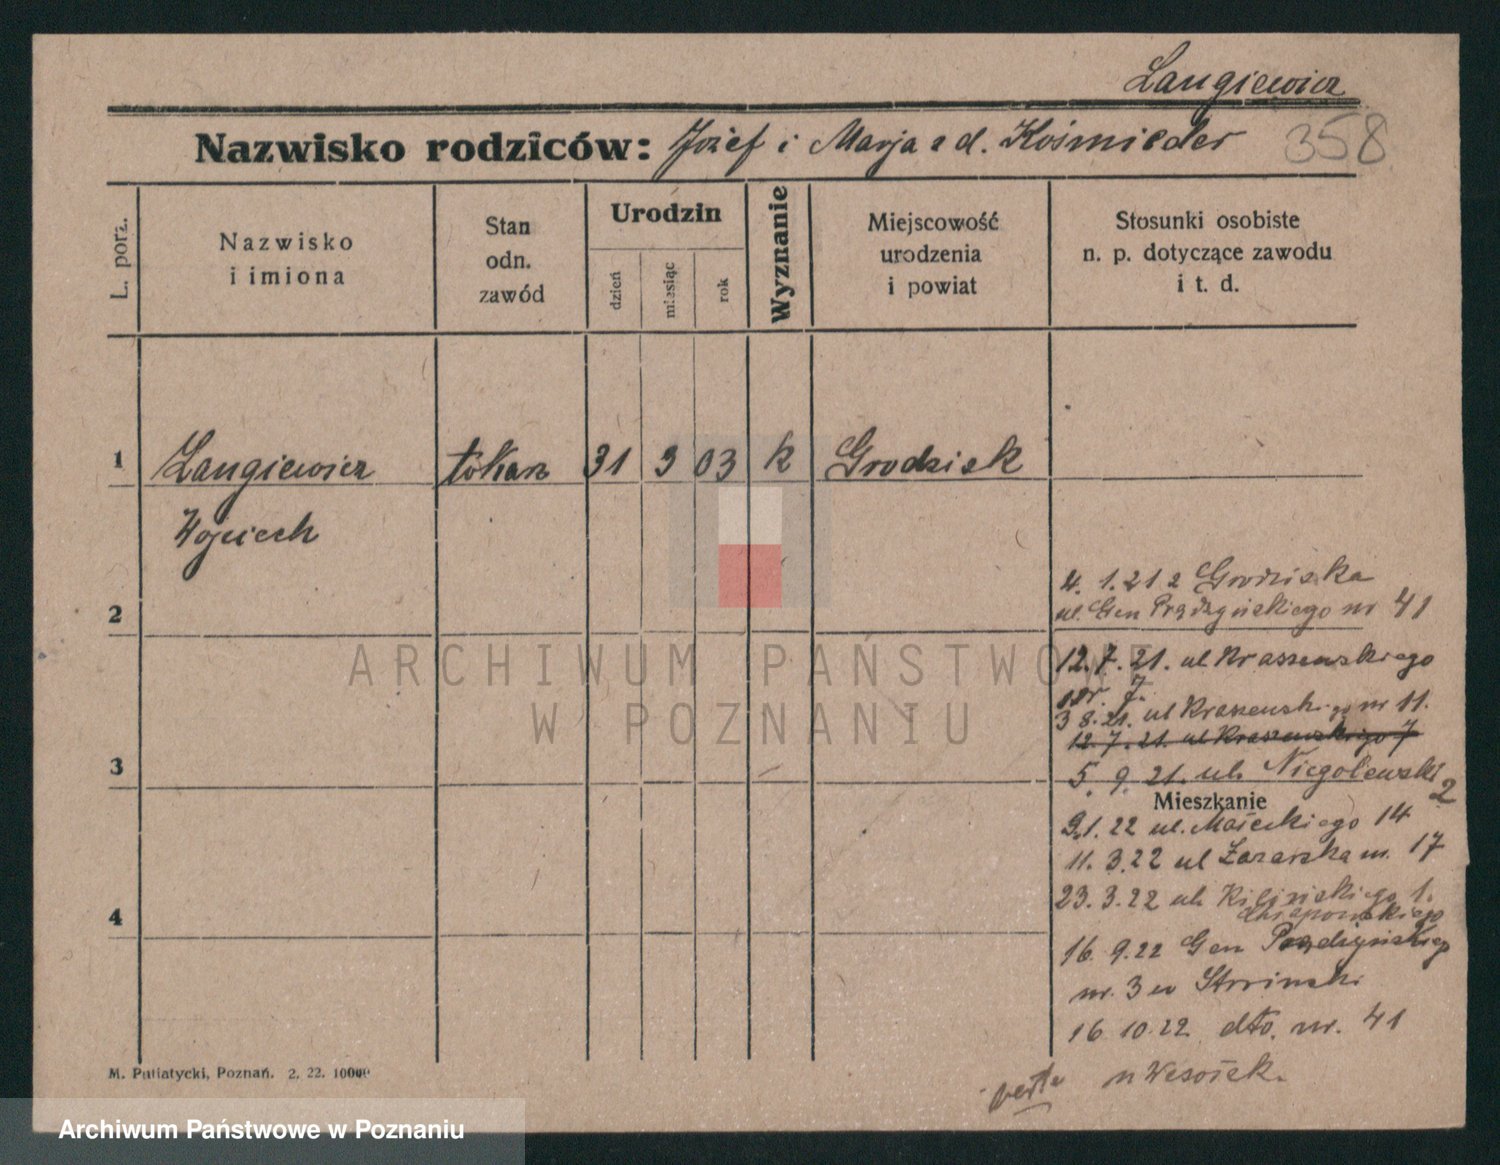 Langiewicz
Nazwisko rodziców: Józef i Marja z d. Kośmieder
358
L. porz.
Nazwisko
i imiona
Stan
odn.
zawód
Urodzin
dzień
miesiąc
rok
Wyznanie
Miejscowość
urodzenia
i powiat
Stosunki osobiste
n. p. dotyczące zawodu
i t. d.
1 Langiewicz tokarz 31 3 03 k Grodzisk
Wojciech
4. 1. 21 z Grodziska
2
ul. Gen Prądzyńskiego nr 41
12. 7. 21. ul Kraszewskiego
nr. 7.
3 8. 21. ul Kraszewskiego nr 11.
12. 7. 21. ul Kraszewskiego 7
3
5. 9. 21. ul. Niegolewski
2
Mieszkanie
9. 1. 22 ul. Małeckiego 14
11. 3. 22 ul Łazarska nr. 17
23. 3. 22 ul. Kilińskiego 1.
4
Chłapowskiego
16. 9. 22 Gen Prądzyńskiego
nr. 3 u
16 10. 22 dto. nr. 41
u Wesołek.
verte
M. Putiatycki, Poznań. 2. 22. 10000
ARCHIWUM PAŃSTWOWE
W POZNANIU
Archiwum Państwowe w Poznaniu